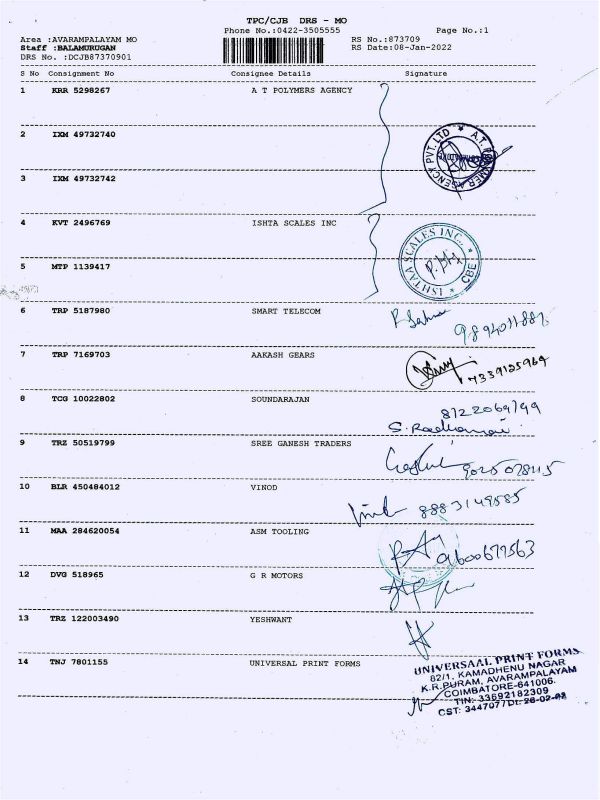 TPC/CJB DRS - MO
Phone No.:0422-3505555 Page No.:1
Area :AVARAMPALAYAM MO RS No.:873709
Staff :BALAMURUGAN RS Date:08-Jan-2022
DRS No. :DCJB87370901
S No Consignment No Consignee Details Signature
1 KRR 5298267 A T POLYMERS AGENCY
2 IXM 49732740
AGENCY PVT. LTD * A.T.
3 IXM 49732742
4 KVT 2496769 ISHTA SCALES INC
ISHTAA SCALES INC., * CBE *
5 MTP 1139417
6 TRP 5187980 SMART TELECOM
7 TRP 7169703 AAKASH GEARS
7339125969
8 TCG 10022802 SOUNDARAJAN
8122069799
S. Radhamani
9 TRZ 50519799 SREE GANESH TRADERS
10 BLR 450484012 VINOD
8883149585
11 MAA 284620054 ASM TOOLING
9600677563
12 DVG 518965 G R MOTORS
13 TRZ 122003490 YESHWANT
14 TNJ 7801155 UNIVERSAL PRINT FORMS
UNIVERSAAL PRINT FORMS
82/1, KAMADHENU NAGAR
K.R.PURAM, AVARAMPALAYAM
COIMBATORE-641006.
TIN: 33692182309
CST: 344707/Dt. 26-02-98